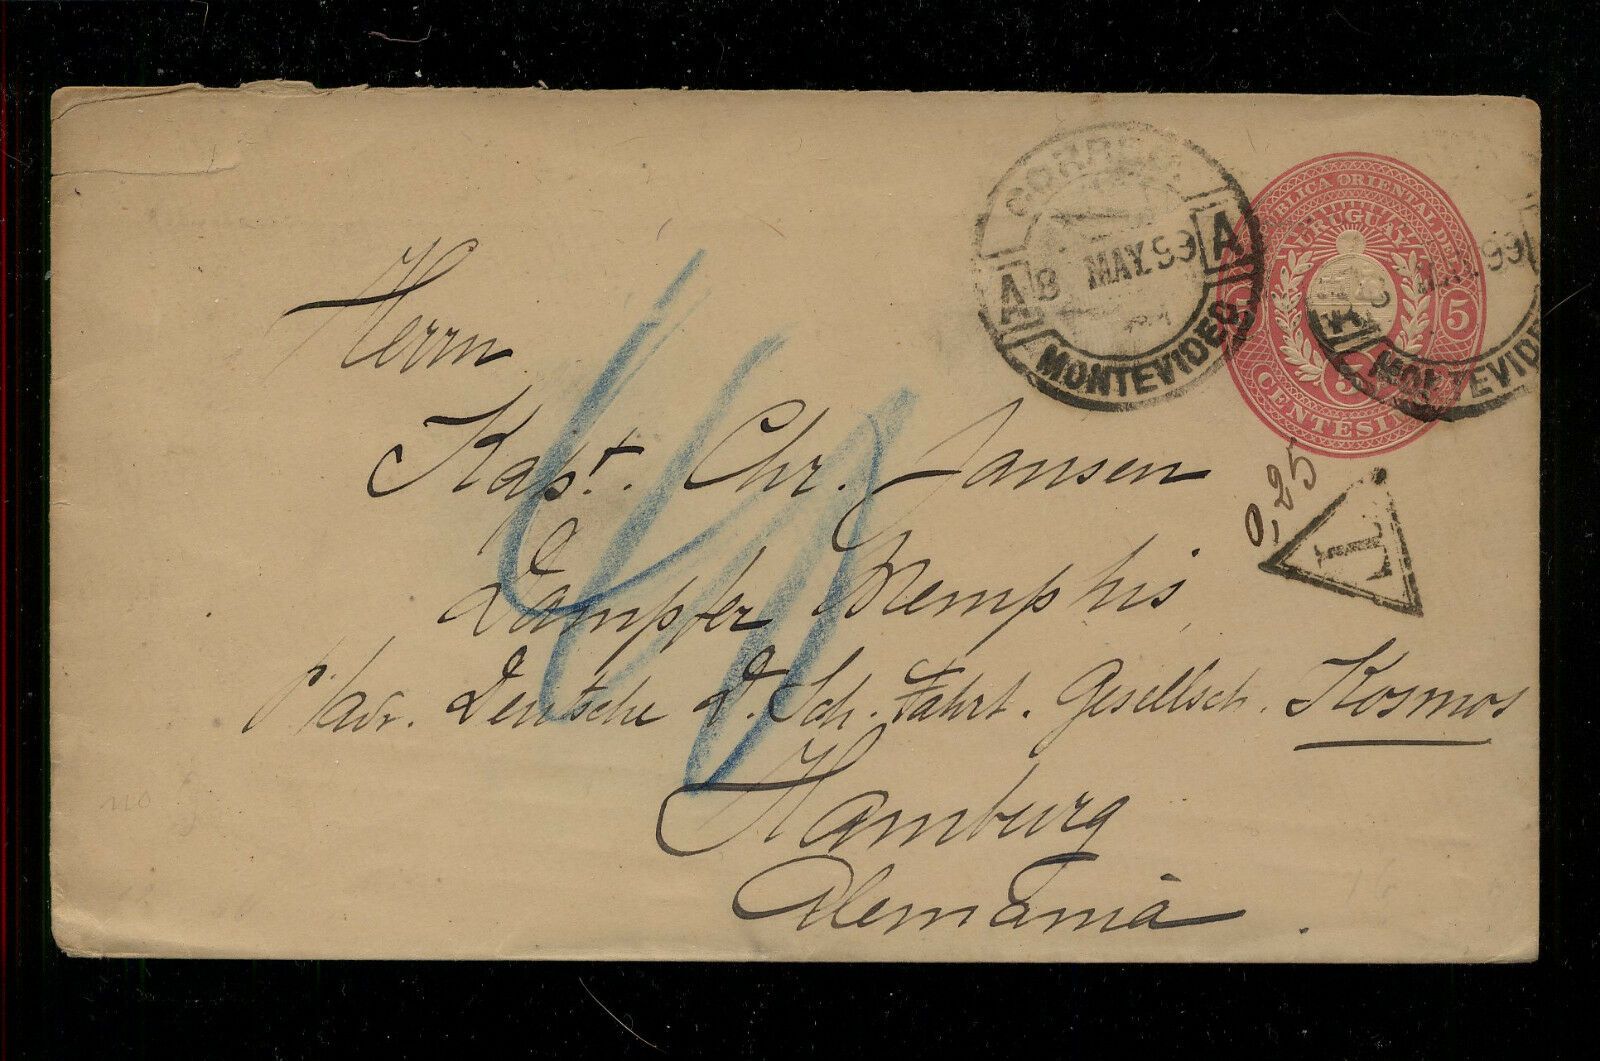 CORREO
A 8 MAY.99 A
MONTEVIDEO
REPÚBLICA ORIENTAL DEL
URUGUAY
5 5
5
CENTESIMOS
8 MAY.99
MONTEVIDEO
0,25
T
Herrn
Kapt. Chr. Jansen
Dampfer Memphis,
p/adr. Deutsche D. Sch. Fahrt. Gesellsch. Kosmos
Hamburg
Alemania.
40